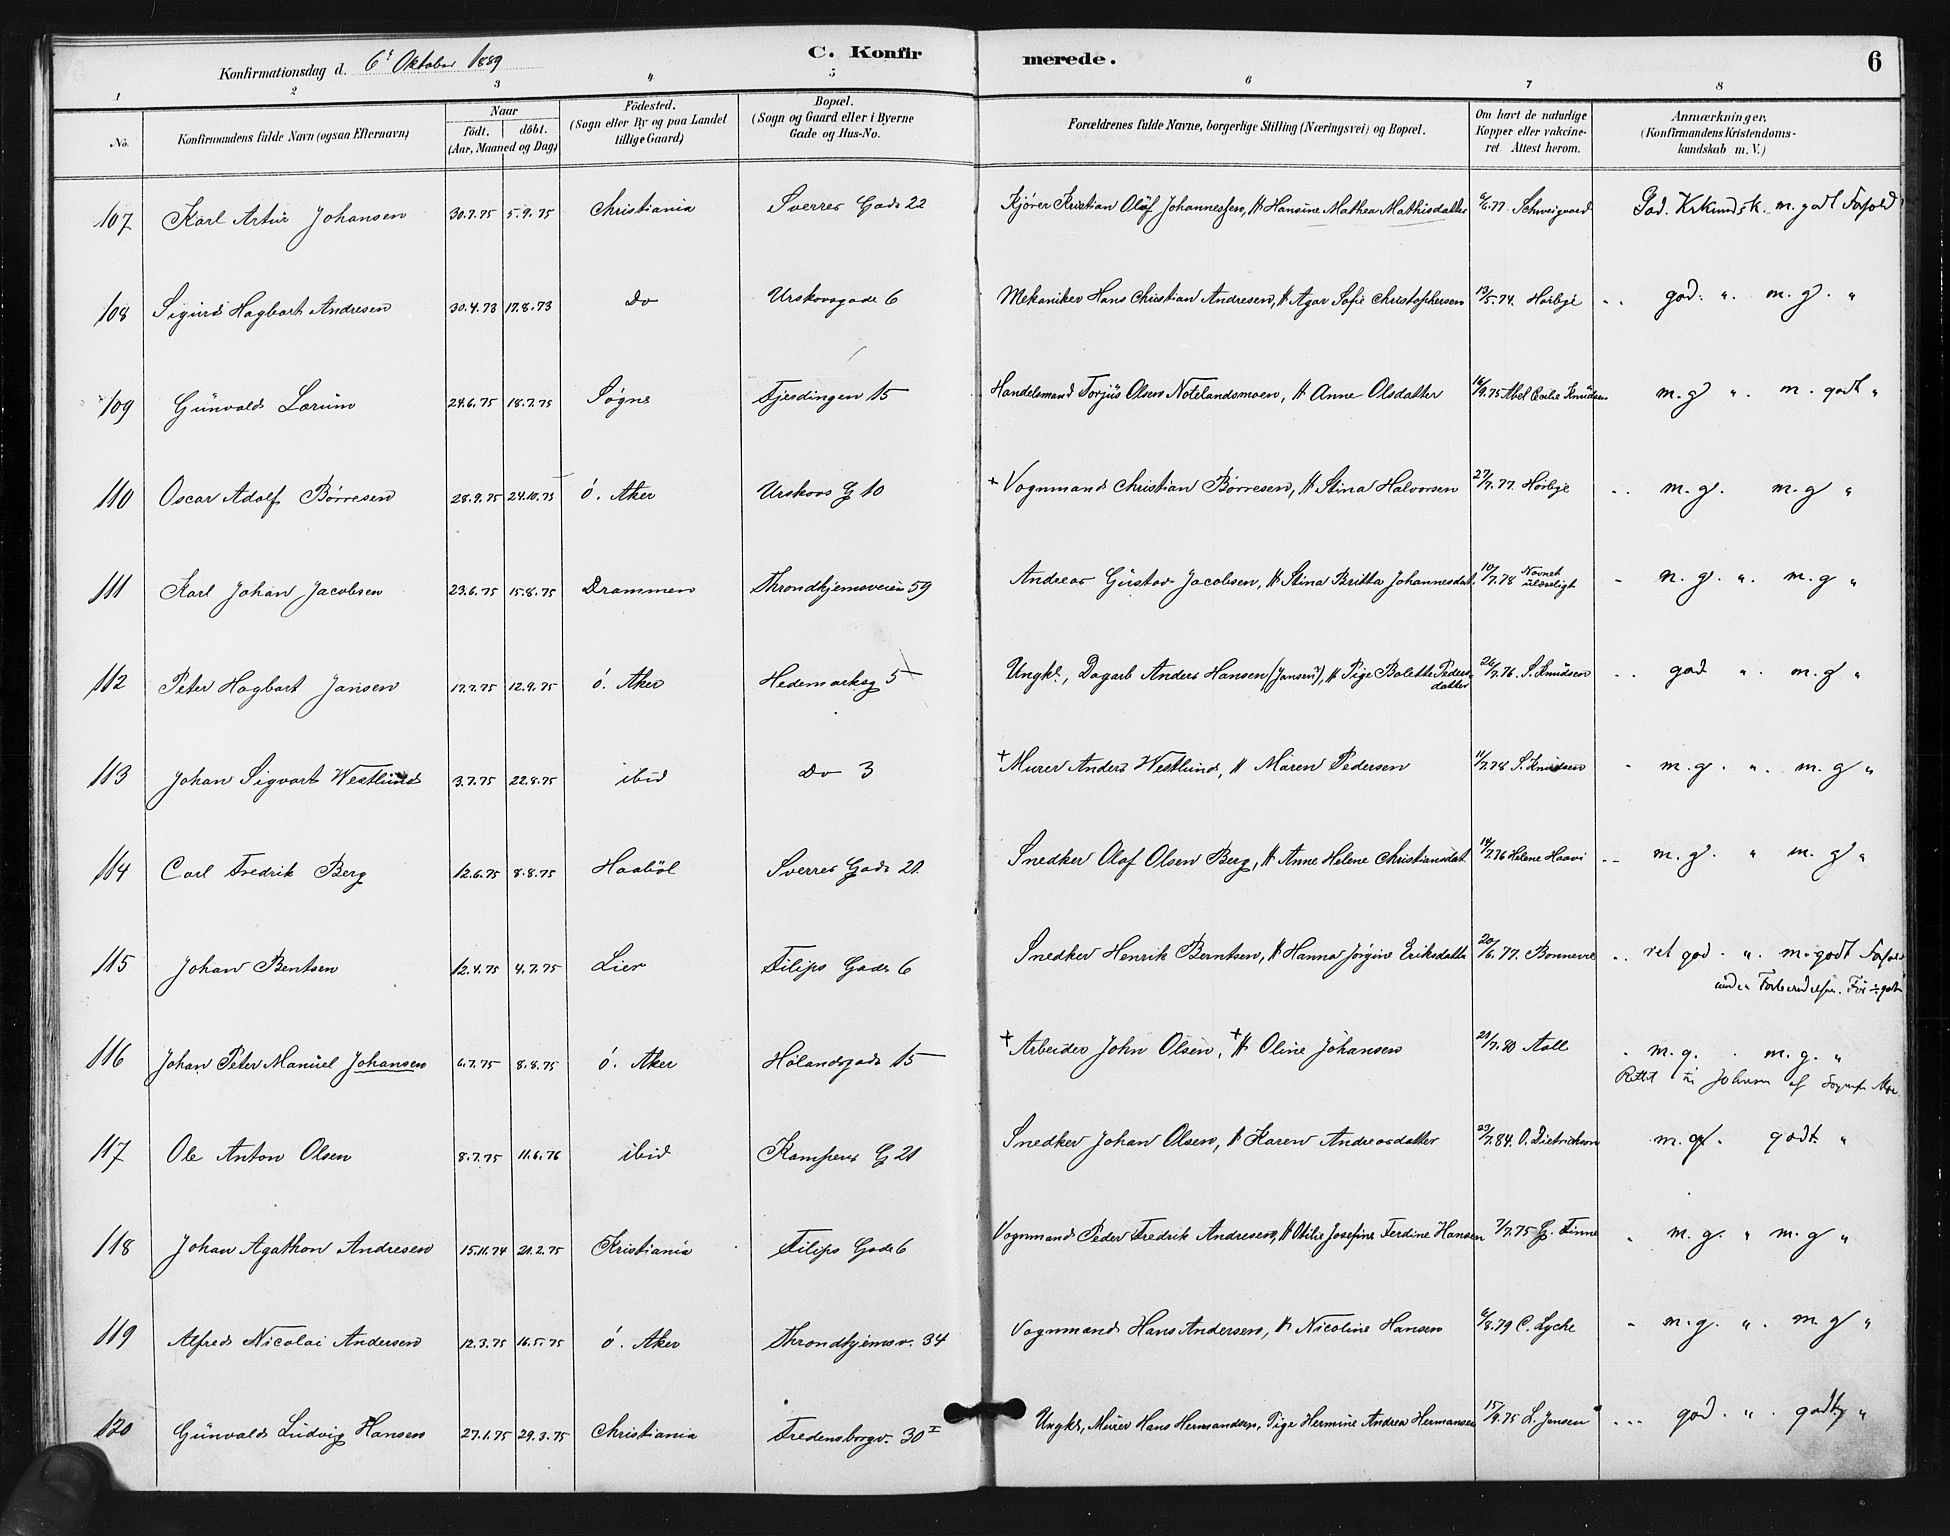 Konfirmationsdag d. 6' Oktober 1889
C. Konfirmerede.
6
1 2 3 4 5 6 7 8
No.
Konfirmandens fulde Navn (ogsaa Efternavn)
Naar
födt. döbt.
(Aar, Maaned og Dag)
Födested.
(Sogn eller By og paa Landet
tillige Gaard)
Bopæl.
(Sogn og Gaard eller i Byerne
Gade og Hus-No.
Forældrenes fulde Navne, borgerlige Stilling (Næringsvei) og Bopæl.
Om havt de naturlige
Kopper eller vakcine-
ret. Attest herom.
Anmærkninger.
(Konfirmandens Kristendoms-
kundskab m. V.)
107 Karl Artur Johansen 30.7.75 5.9.75 Christiania Sverres Gade 22 Kjører Kristian Olaf Johannessen, H Hansine Mathea Mathisdatter 6/6.77. Schweigaard God. Krkundsk. m. godt Forhold
108 Sigurd Hagbart Andresen 30.4.73 17.8.73 Do Urskovsgade 6 Mekaniker Hans Christian Andresen, H Agar Sofie Christophersen 13/5.74. Hørbye god. " m. g. "
109 Günvald Lorüm 24.6.75 18.7.75 Søgne Fjerdingen 15 Handelsmand Torjüs Olsen Notelandsmoen, H Anne Olsdatter 16/9.75 Abel Cecilie Knüdsen m. g " m. godt "
110 Oscar Adolf Børresen 28.9.75 24.10.75 Ö. Aker Urskovs G 10 + Vognmand Christian Børresen, H Stina Halvorsen 27/7.77. Hørbye m. g. m. g "
111 Karl Johan Jacobsen 23.6.75 15.8.75 Drammen Throndhjemsveien 59 Andreas Güstav Jacobsen, H Stina Britta Johannesdat. 10/7.78 Navnet ulæseligt m. g. " m. g "
112 Peter Hagbart Jansen 17.7.75 12.9.75 Ö. Aker Hedemarksg 5 Ungk., Dagarb Anders Hansen (Jansen?), H Pige Bolette Peders-
datter 26/7.76. S. Knüdsen god " m. g "
113 Johan Sigvart Westlund 3.7.75 22.8.75 ibid Do 3 + Murer Anders Westlund, H Maren Pedersen 11/7.78 S. Knüdsen m. g. " m. g "
114 Carl Fredrik Berg 12.6.75 8.8.75 Haaböl Sverres Gade 21. Snedker Olaf Olsen Berg, H Anne Helene Christiansdat. 14/7.76 Helene Haavi m. g. " m. g "
115 Johan Bentsen 12.4.75 4.7.75 Lier Filips Gade 6 Snedker Henrik Berntsen, H Hanna Jørgine Eriksdatter 20/6.77. Bonnevie ret god. " m. godt Forhold
under Forberedelsen. Før ÷ godt
116 Johan Peter Manüel Johansen 6.7.75 8.8.75 Ö. Aker Hölandsgade 15 + Arbeider John Olsen, + H Oline Johansen 21/7.80 Aall m. g. m. g. "
Rettet til Johnsen af
117 Ole Anton Olsen 8.7.75 11.6.76 ibid Kampens G 21 Snedker Johan Olsen, H Karen Andreasdatter 23/7.84. O. Dietrichson m. g. godt. "
118 Johan Agathon Andresen 15.11.74 21.2.75 Kristiania Filips Gade 6 Vognmand Peder Fredrik Andresen, H Otilie Josefine Ferdine Hansen 7/7.75 G. Finne m. g. " m. g "
119 Alfred Nicolai Andersen 12.3.75 16.5.75 Ö. Aker Throndhjemsv. 34 Vognmand Hans Andersen, H Nicoline Hansen 6/8.79 C. Lyche m. g. " m. g "
120 Günvald Lüdvig Hansen 27.1.75 29.3.75 Christiania Fredensborgv. 30 I Ungk., Murer Hans Hermandsen, Pige Hermine Andrea Hermansen 15/9.75 L. Jensen god. " godt "